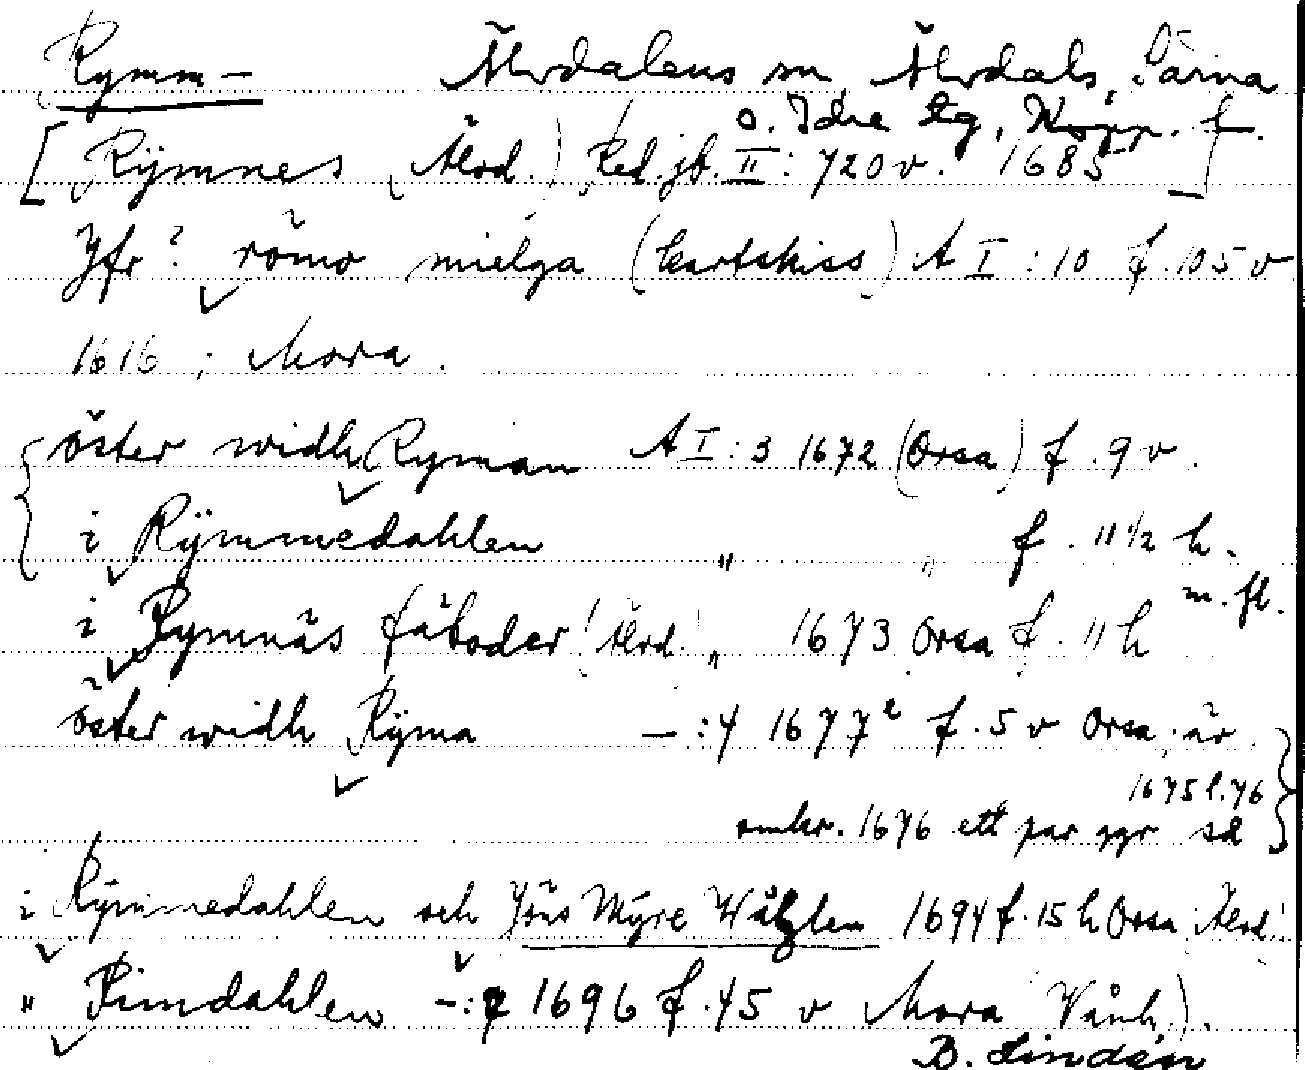 Rymm- Älvdalens sn, Älvdals, Särna
o. Idre tg, Kopp. l.
[Rÿmnes (Älvd.) Red.jb. II: 720 v. 1685]
Jfr? römo mielga (kartskiss) A I:10 f. 105 v
1616; Mora.
öster widh Ryman A I:3 1672 (Orsa) f. 9 v.
i Rÿmmedahlen " " f. 11½ h.
m. fl.
i Rymnäs fäboder (Älvd.) " 1673 Orsa f. 11 h
öster widh Rÿma -:4 1677² f. 5 v Orsa, är
1675 l. 76
omkr. 1676 ett par ggr så
i Rÿmmedahlen och Jöns Myre Wålen 1694 f. 15 h Orsa (Älvd.)
" Rimdahlen -:7 1696 f. 45 v Mora (Våmh.).
B. Lindén